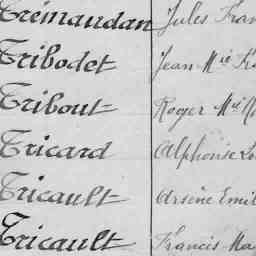 Trémaudan Jules Fran
Tribodet Jean Mie Fr
Tribout Roger Mel
Tricard Alphonse Lo
Tricault Arsène Emil
Tricault Francis Ma